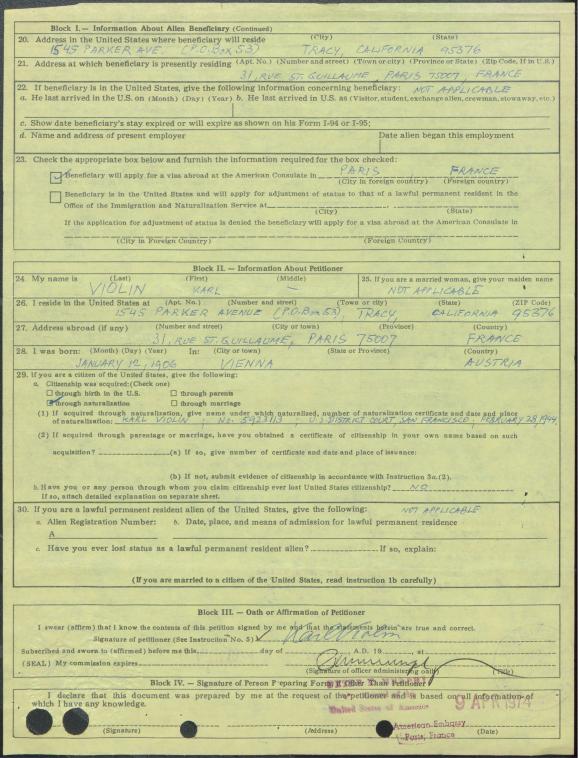 Block I. — Information About Alien Beneficiary (Continued)
20. Address in the United States where beneficiary will reside (City) (State)
1545 PARKER AVE. (P.O.Box 53) TRACY, CALIFORNIA 95376
21. Address at which beneficiary is presently residing (Apt. No.) (Number and street) (Town or city) (Province or State) (Zip Code, if in U.S.)
31, RUE ST. GUILLAUME, PARIS 75007, FRANCE
22. If beneficiary is in the United States, give the following information concerning beneficiary: NOT APPLICABLE
a. He last arrived in the U.S. on (Month) (Day) (Year) b. He last arrived in U.S. as (Visitor, student, exchange alien, crewman, stowaway, etc.)
c. Show date beneficiary's stay expired or will expire as shown on his Form I-94 or I-95;
d. Name and address of present employer Date alien began this employment
23. Check the appropriate box below and furnish the information required for the box checked:
Beneficiary will apply for a visa abroad at the American Consulate in PARIS FRANCE
(City in foreign country) (Foreign country)
Beneficiary is in the United States and will apply for adjustment of status to that of a lawful permanent resident in the
Office of the Immigration and Naturalization Service at
(City) (State)
If the application for adjustment of status is denied the beneficiary will apply for a visa abroad at the American Consulate in
(City in Foreign Country) (Foreign Country)
Block II. — Information About Petitioner
24. My name is (Last) (First) (Middle) 25. If you are a married woman, give your maiden name
VIOLIN KARL — NOT APPLICABLE
26. I reside in the United States at (Apt. No.) (Number and street) (Town or city) (State) (ZIP Code)
1545 PARKER AVENUE (P.O.Box 53), TRACY, CALIFORNIA 95376
27. Address abroad (if any) (Number and street) (City or town) (Province) (Country)
31, RUE ST. GUILLAUME, PARIS 75007 FRANCE
28. I was born: (Month) (Day) (Year) In: (City or town) (State or Province) (Country)
JANUARY 12, 1906 VIENNA AUSTRIA
29. If you are a citizen of the United States, give the following:
a. Citizenship was acquired: (Check one)
through birth in the U.S. through parents
through naturalization through marriage
(1) If acquired through naturalization, give name under which naturalized, number of naturalization certificate and date and place
of naturalization: KARL VIOLIN ; No. 5923113 ; U.S DISTRICT COURT, SAN FRANCISCO, FEBRUARY 28, 1944
(2) If acquired through parentage or marriage, have you obtained a certificate of citizenship in your own name based on such
acquisition? (a) If so, give number of certificate and date and place of issuance:
(b) If not, submit evidence of citizenship in accordance with Instruction 3a.(2).
b. Have you or any person through whom you claim citizenship ever lost United States citizenship? NO
If so, attach detailed explanation on separate sheet.
30. If you are a lawful permanent resident alien of the United States, give the following: NOT APPLICABLE
a. Alien Registration Number: b. Date, place, and means of admission for lawful permanent residence
A
c. Have you ever lost status as a lawful permanent resident alien? If so, explain:
(If you are married to a citizen of the United States, read instruction 1b carefully)
Block III. — Oath or Affirmation of Petitioner
I swear (affirm) that I know the contents of this petition signed by me and that the statements herein are true and correct.
Signature of petitioner (See Instruction No. 5) Karl Violin
Subscribed and sworn to (affirmed) before me this day of A.D. 19 , at
(SEAL) My commission expires
(Signature of officer administering oath) (Title)
Block IV. — Signature of Person Preparing Form Other Than Petitioner
I declare that this document was prepared by me at the request of the petitioner and is based on all information of
which I have any knowledge.
United States of America
9 APR 1974
American Embassy
Paris, France
(Signature) (Address) (Date)